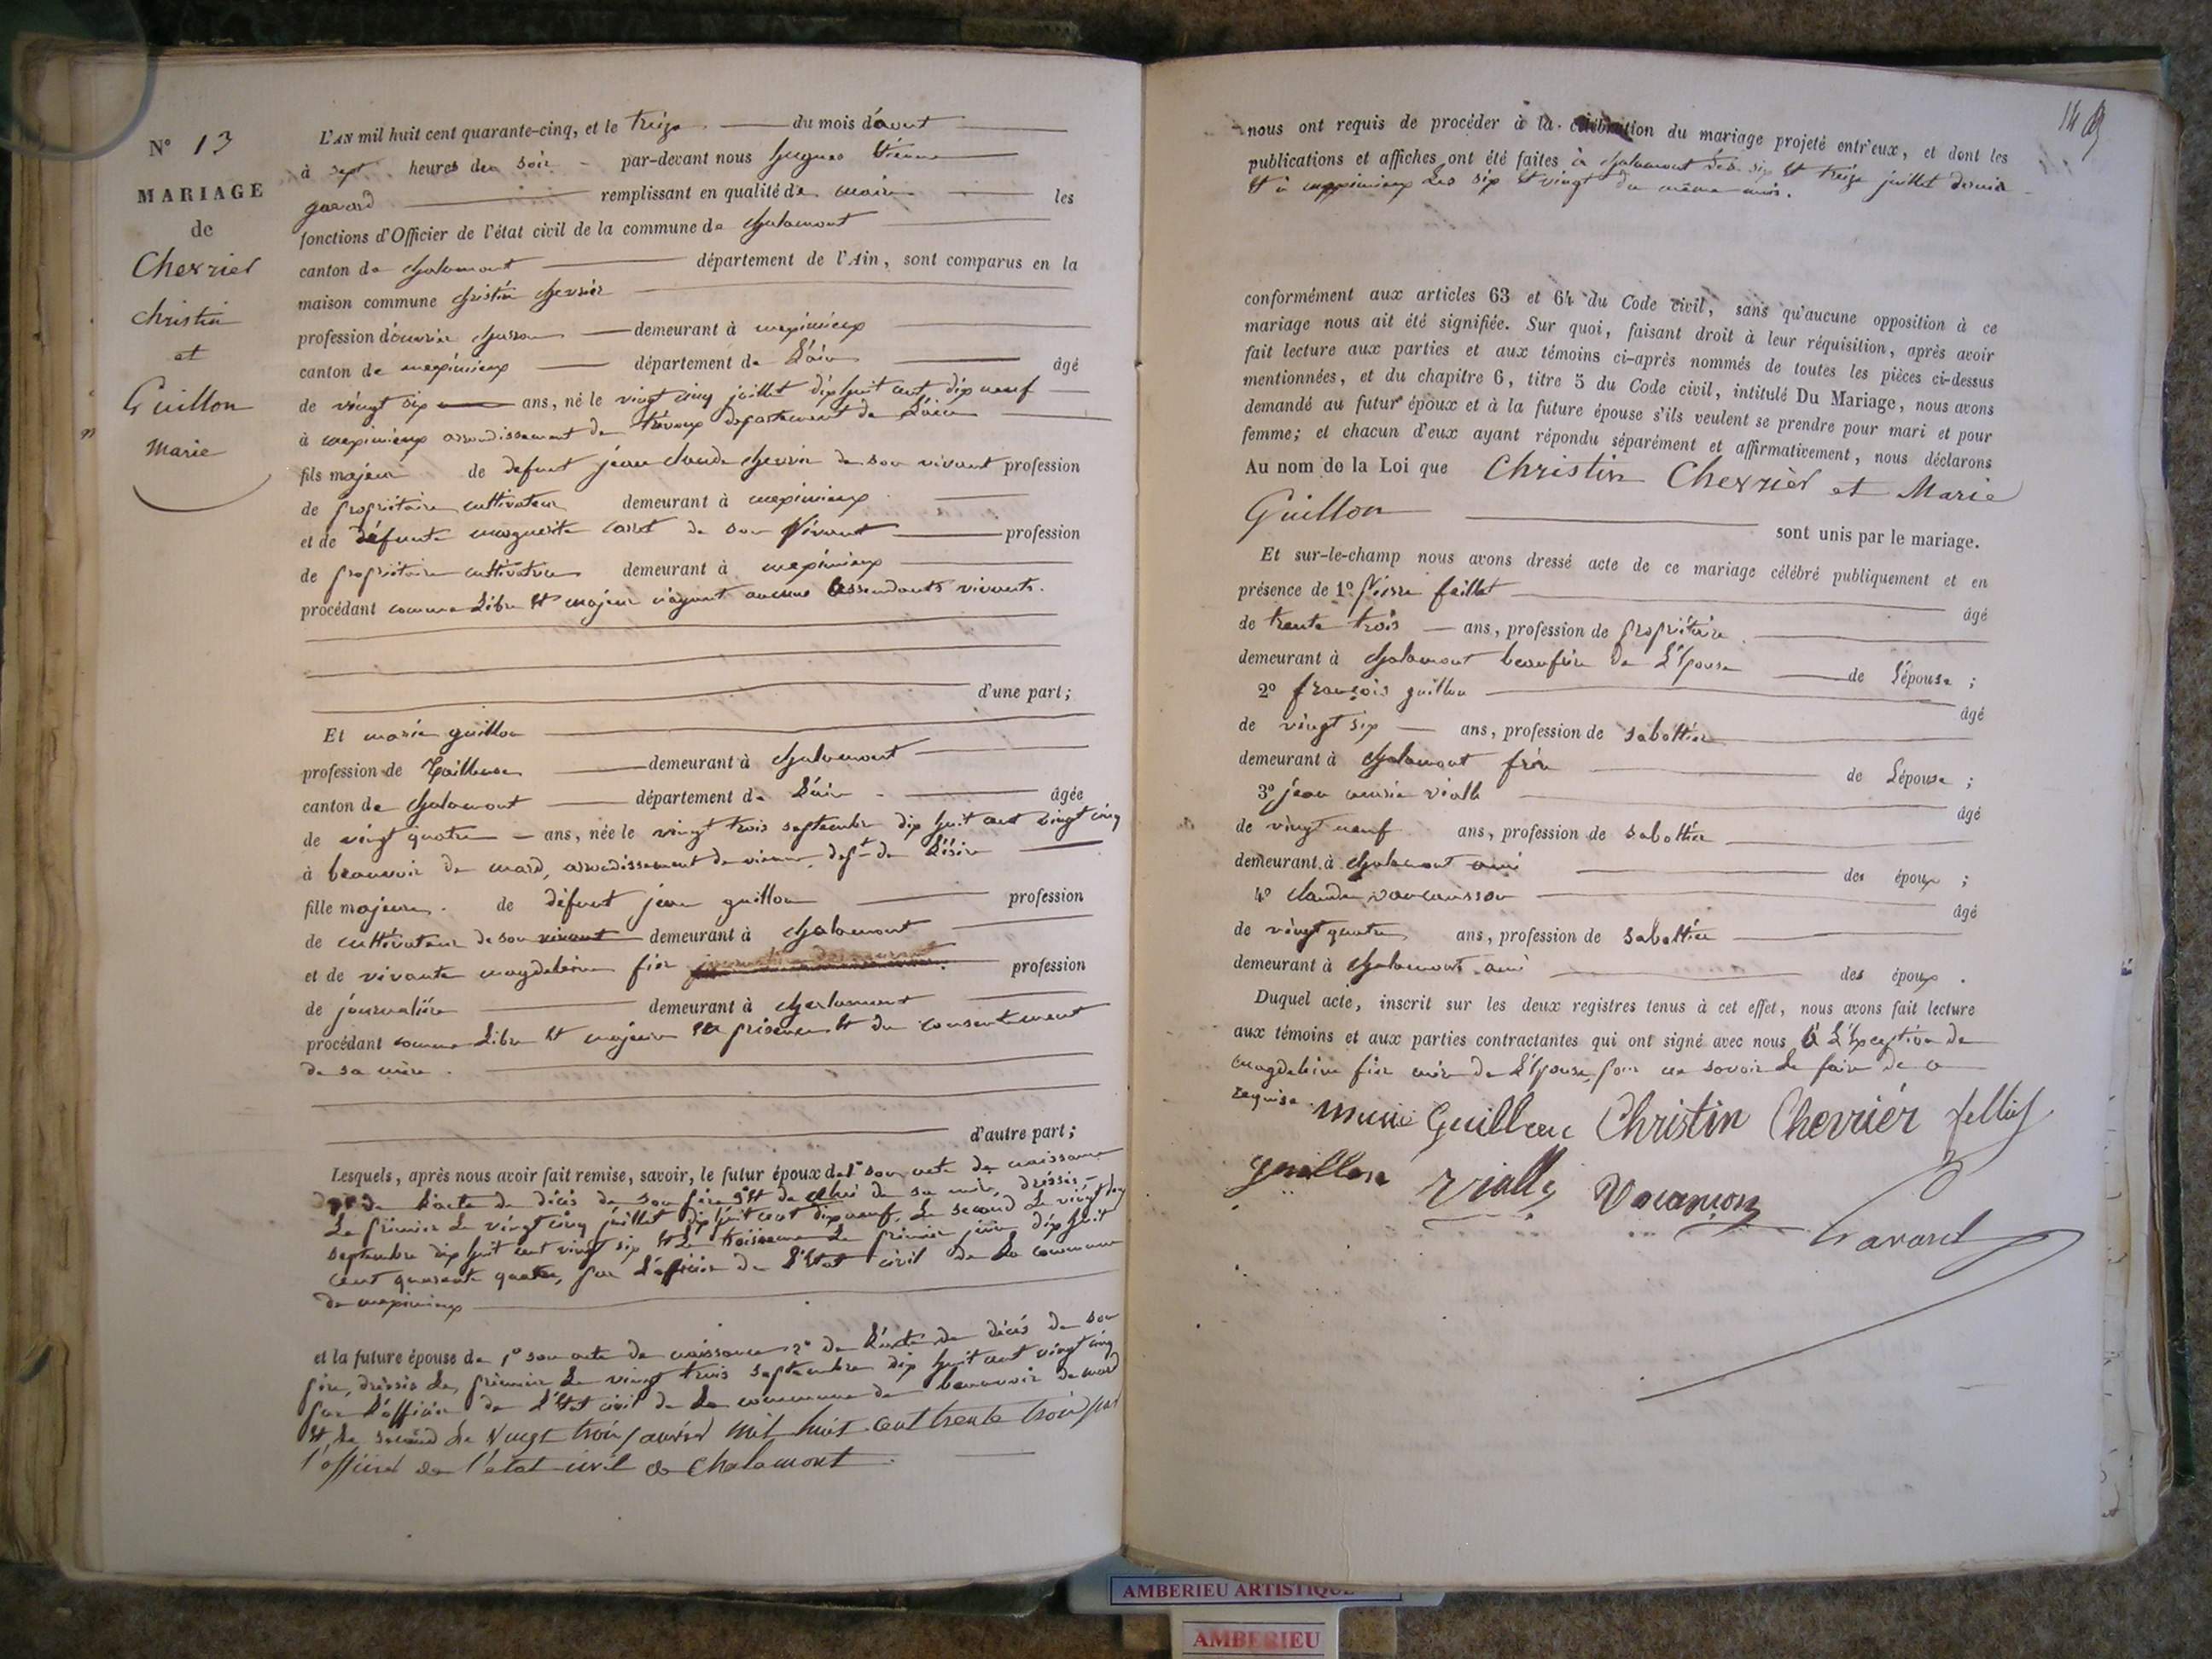 N° 13
MARIAGE
de
Chevrier
christin
et
Guillon
Marie
L'AN mil huit cent quarante-cinq, et le treize du mois d'aout
à sept heures du soir par-devant nous hugues Étienne
gavard remplissant en qualité de maire les
fonctions d'Officier de l'état civil de la commune de chalamont
canton de chalamont département de l'Ain, sont comparus en la
maison commune christin chevrier
profession d'ouvrier demeurant à meximieux
canton de meximieux département de L'ain âgé
de vingt six ans, né le vingt cinq juillet dix huit cent dix neuf
à meximieux arrondissement de trévoux departement de L'ain
fils majeur de defunt jean claude chevrier de son vivant profession
de propriétaire cultivateur demeurant à meximieux
et de défunte marguerite carret de son vivant profession
de propriétaire cultivatrice demeurant à meximieux
procédant comme Libre et majeur n'ayant aucuns assendants vivants.
d'une part;
Et marie guillon
profession de Tailleuse demeurant à chalamont
canton de chalamont département de L'ain âgée
de vingt quatre ans, née le vingt trois septembre dix huit cent vingt cinq
à beauvoir de marc, arrondissement de vienne, dept de L'isère
fille majeure de défunt jean guillon profession
de cultivateur de son vivant demeurant à chalamont
et de vivante magdeleine fier profession
de journalière demeurant à chalamont
procédant comme Libre et majeure en présence et du consentement
de sa mère.
d'autre part;
Lesquels, après nous avoir fait remise, savoir, le futur époux de 1° son acte de naissance
2° de L'acte de décès de son père 3° et de celui de sa mère, dréssés
Le premier Le vingt cinq juillet dix huit cent dix neuf, Le second Le vingt
septembre dix huit cent vingt six et Le troisieme Le premier juin dix huit
cent quarante quatre, par L'officier de L'état civil de La commune
de meximieux
et la future épouse de 1° son acte de naissance 2° de L'acte de décès de son
père, dréssés Le premier Le vingt trois septembre dix huit cent vingt cinq
par L'officier de L'état civil de La commune de beauvoir de marc
et Le second Le Vingt trois janvier mil huit cent trente trois par
l'officier de l'état civil de Chalamont.
149
nous ont requis de procéder à la célébration du mariage projeté entr'eux, et dont les
publications et affiches ont été faites à chalamont Les six et treize juillet dernier
et à meximieux Les six et vingt du même mois.
conformément aux articles 63 et 64 du Code civil, sans qu'aucune opposition à ce
mariage nous ait été signifiée. Sur quoi, faisant droit à leur réquisition, après avoir
fait lecture aux parties et aux témoins ci-après nommés de toutes les pièces ci-dessus
mentionnées, et du chapitre 6, titre 5 du Code civil, intitulé Du Mariage, nous avons
demandé au futur époux et à la future épouse s'ils veulent se prendre pour mari et pour
femme; et chacun d'eux ayant répondu séparément et affirmativement, nous déclarons
Au nom de la Loi que Christin Chevrier et Marie
Guillon sont unis par le mariage.
Et sur-le-champ nous avons dressé acte de ce mariage célébré publiquement et en
présence de 1° Pierre faillet âgé
de trente trois ans, profession de propriétaire
demeurant à chalamont beaufrère de L'épouse de L'épouse;
2° françois guillon âgé
de vingt six ans, profession de sabottier
demeurant à chalamont frère de L'épouse;
3° jean marie vialle âgé
de vingt neuf ans, profession de sabottier
demeurant à chalamont ami des époux;
4° claude vaucansson âgé
de vingt quatre ans, profession de sabottier
demeurant à chalamont ami des époux.
Duquel acte, inscrit sur les deux registres tenus à cet effet, nous avons fait lecture
aux témoins et aux parties contractantes qui ont signé avec nous à L'éxception de
magdeleine fier mère de L'épouse, pour ne savoir Le faire de ce
requise.
Marie Guillon Christin Chevrier
guillon Vialle Vocanson
Gavard
AMBERIEU ARTISTIQUE
AMBERIEU